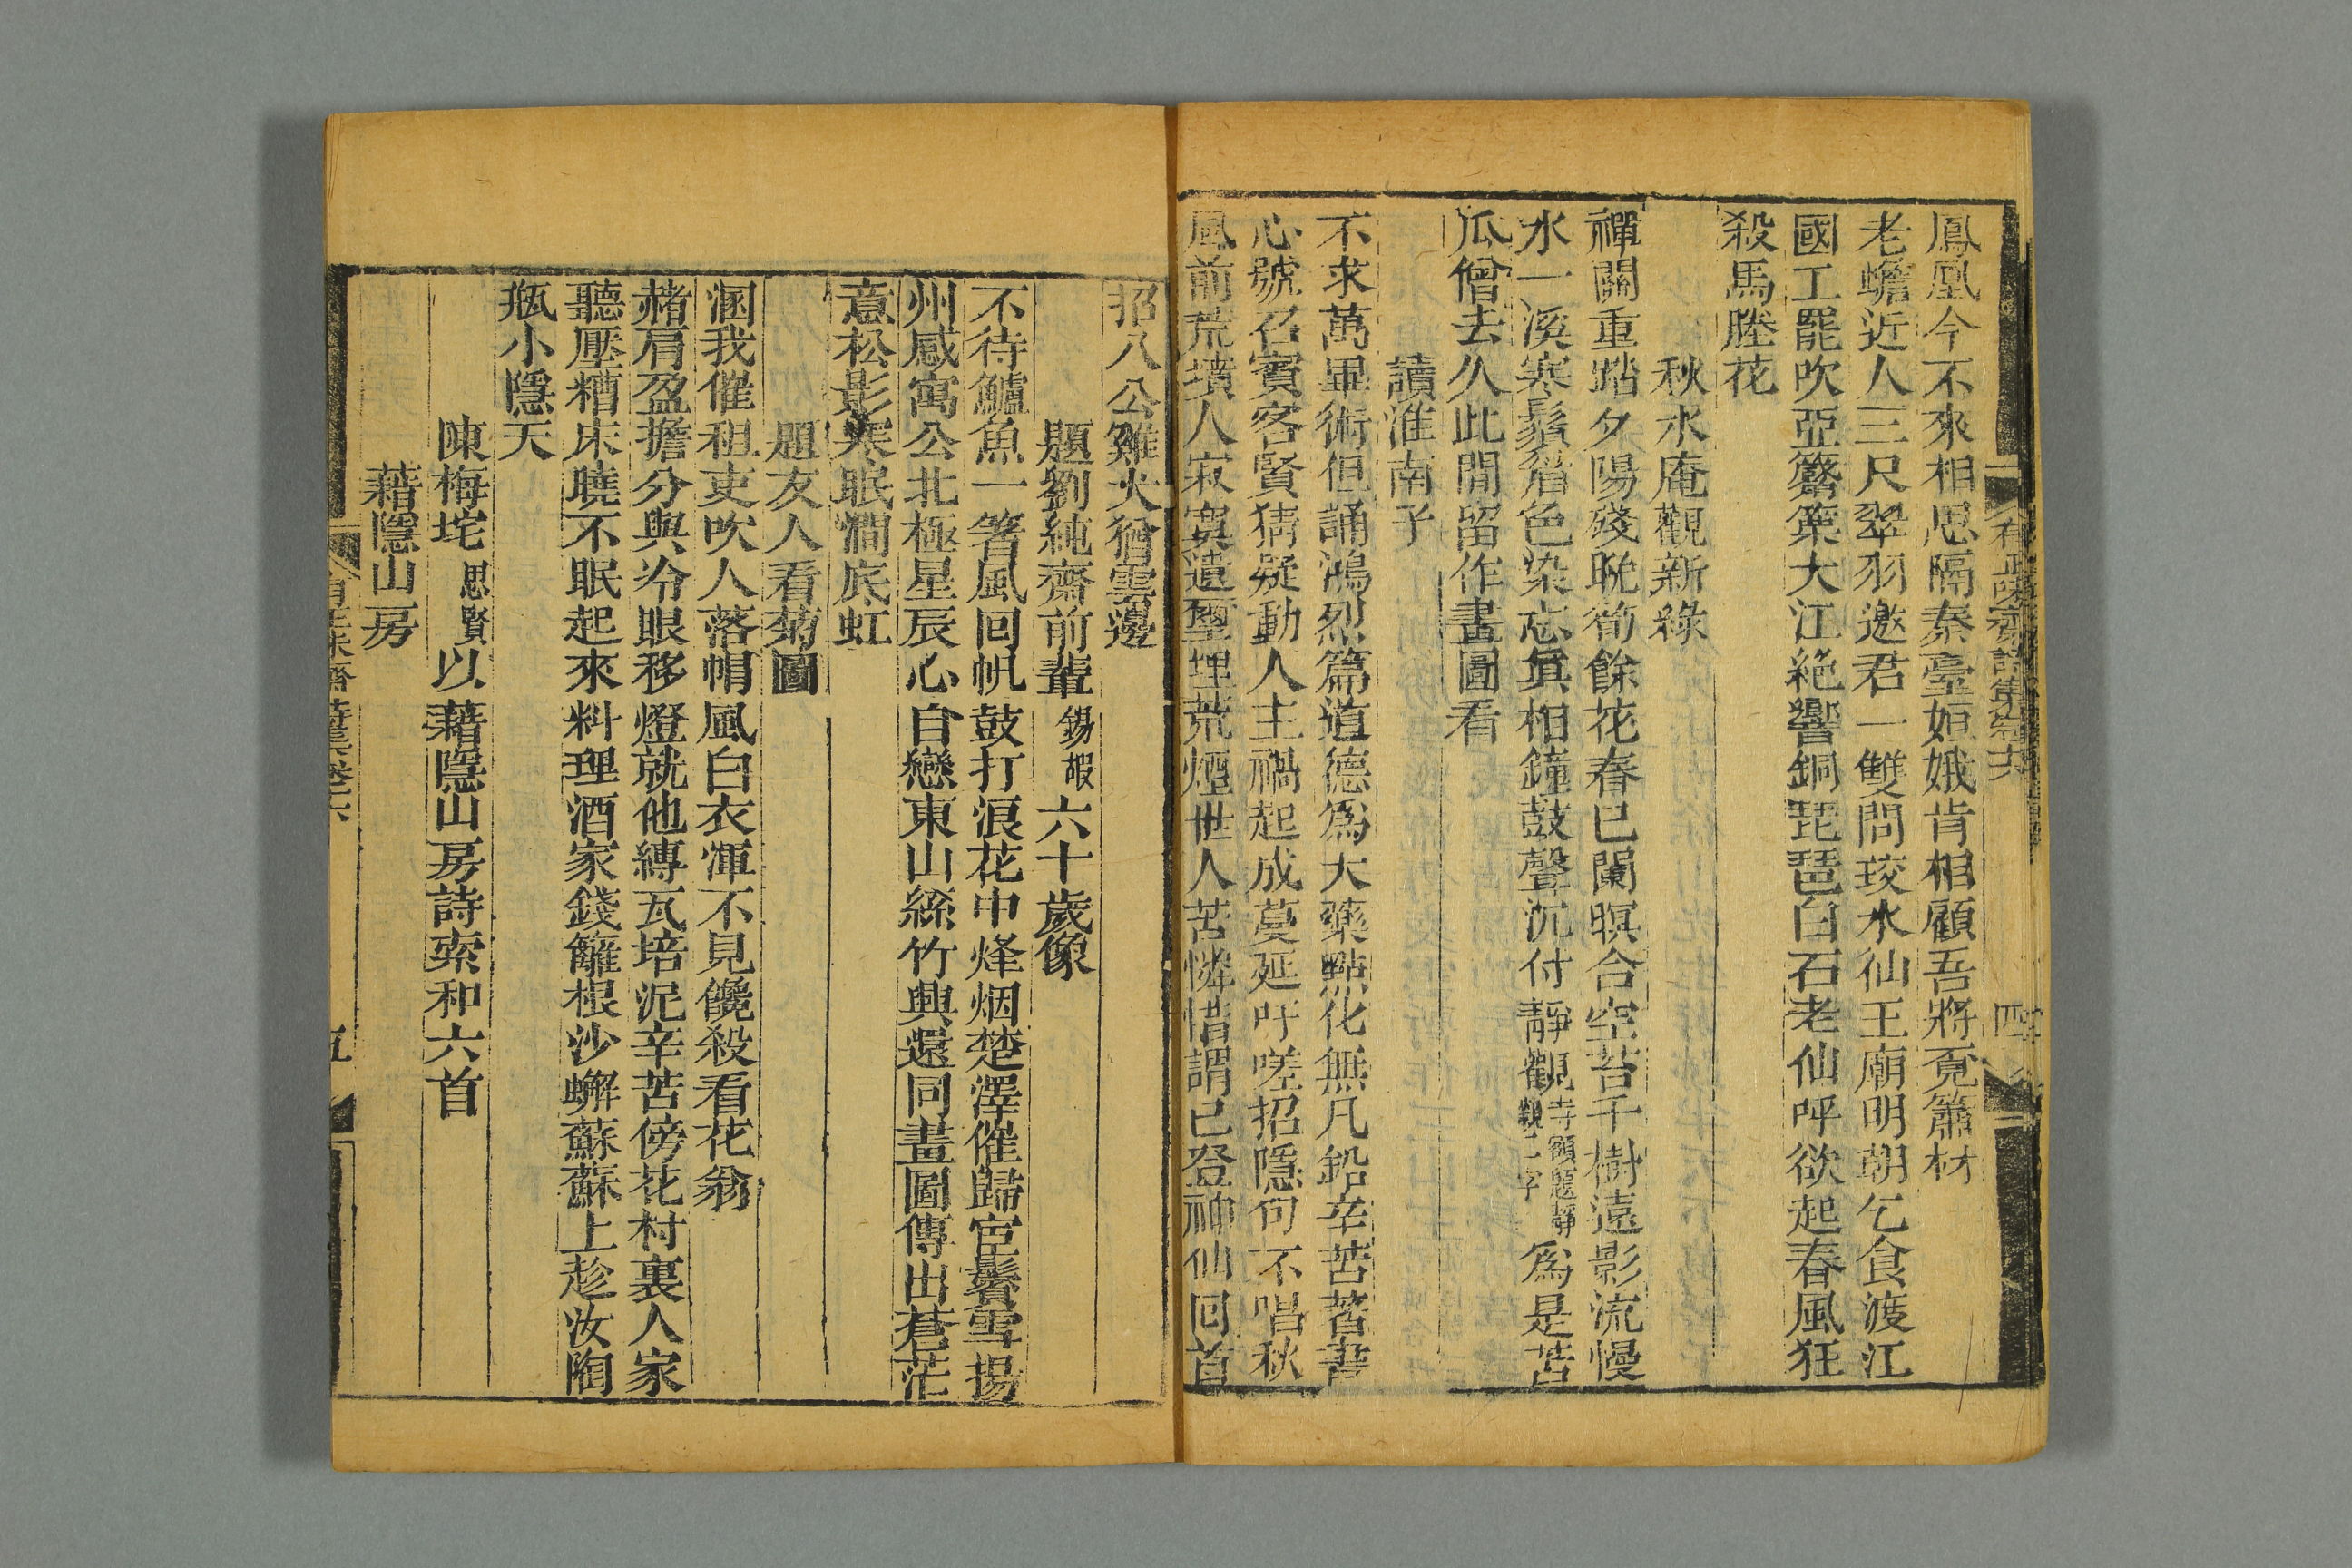 有正味齋詩集卷六
四
鳳凰今不來相思隔秦臺姮娥肯相顧吾將覔簫材
老蟾近人三尺翠羽邀君一雙問珓水仙王廟明朝乞食渡江
國工罷吹亞簷葉大江絶響銅琵琶白石老仙呼欲起春風狂
殺馬塍花
秋水庵觀新綠
禪關重踏夕陽殘晩筍餘花春已闌暝合空苔千樹遠影流慢
水一溪寒鬚眉色染忘眞相鐘鼓聲沉付靜觀寺額題靜觀二字爲是苦
瓜僧去久此間留作畫圖看
讀淮南子
不求萬畢術但誦鴻烈篇道德爲大藥點化無凡鉛辛苦著書
心號召賓客賢猜疑動人主禍起成蔓延吁嗟招隱何不唱秋
風前荒墳人寂寞遺壟埋荒煙世人苦憐惜謂已登神仙回首
招八公雞犬猶雲邊
題劉純齋前輩錫嘏六十歲像
不待鱸魚一箸風回帆鼓打浪花中烽烟楚澤催歸宦鬢雪揚
州感寓公北極星辰心自戀東山絲竹興還同畫圖傳出蒼茫
意松影寒眠澗底虹
題友人看菊圖
溷我催租吏吹人落帽風白衣渾不見饞殺看花翁
赭肩盈擔分與冷眼移燈就他縛瓦培泥辛苦傍花村裏人家
聽壓糟床曉不眠起來料理酒家錢籬根沙蠏蘇蘇上趁汝陶
瓶小隱天
陳梅垞思賢以藉隱山房詩索和六首
藉隱山房
有正味齋詩集卷六
五